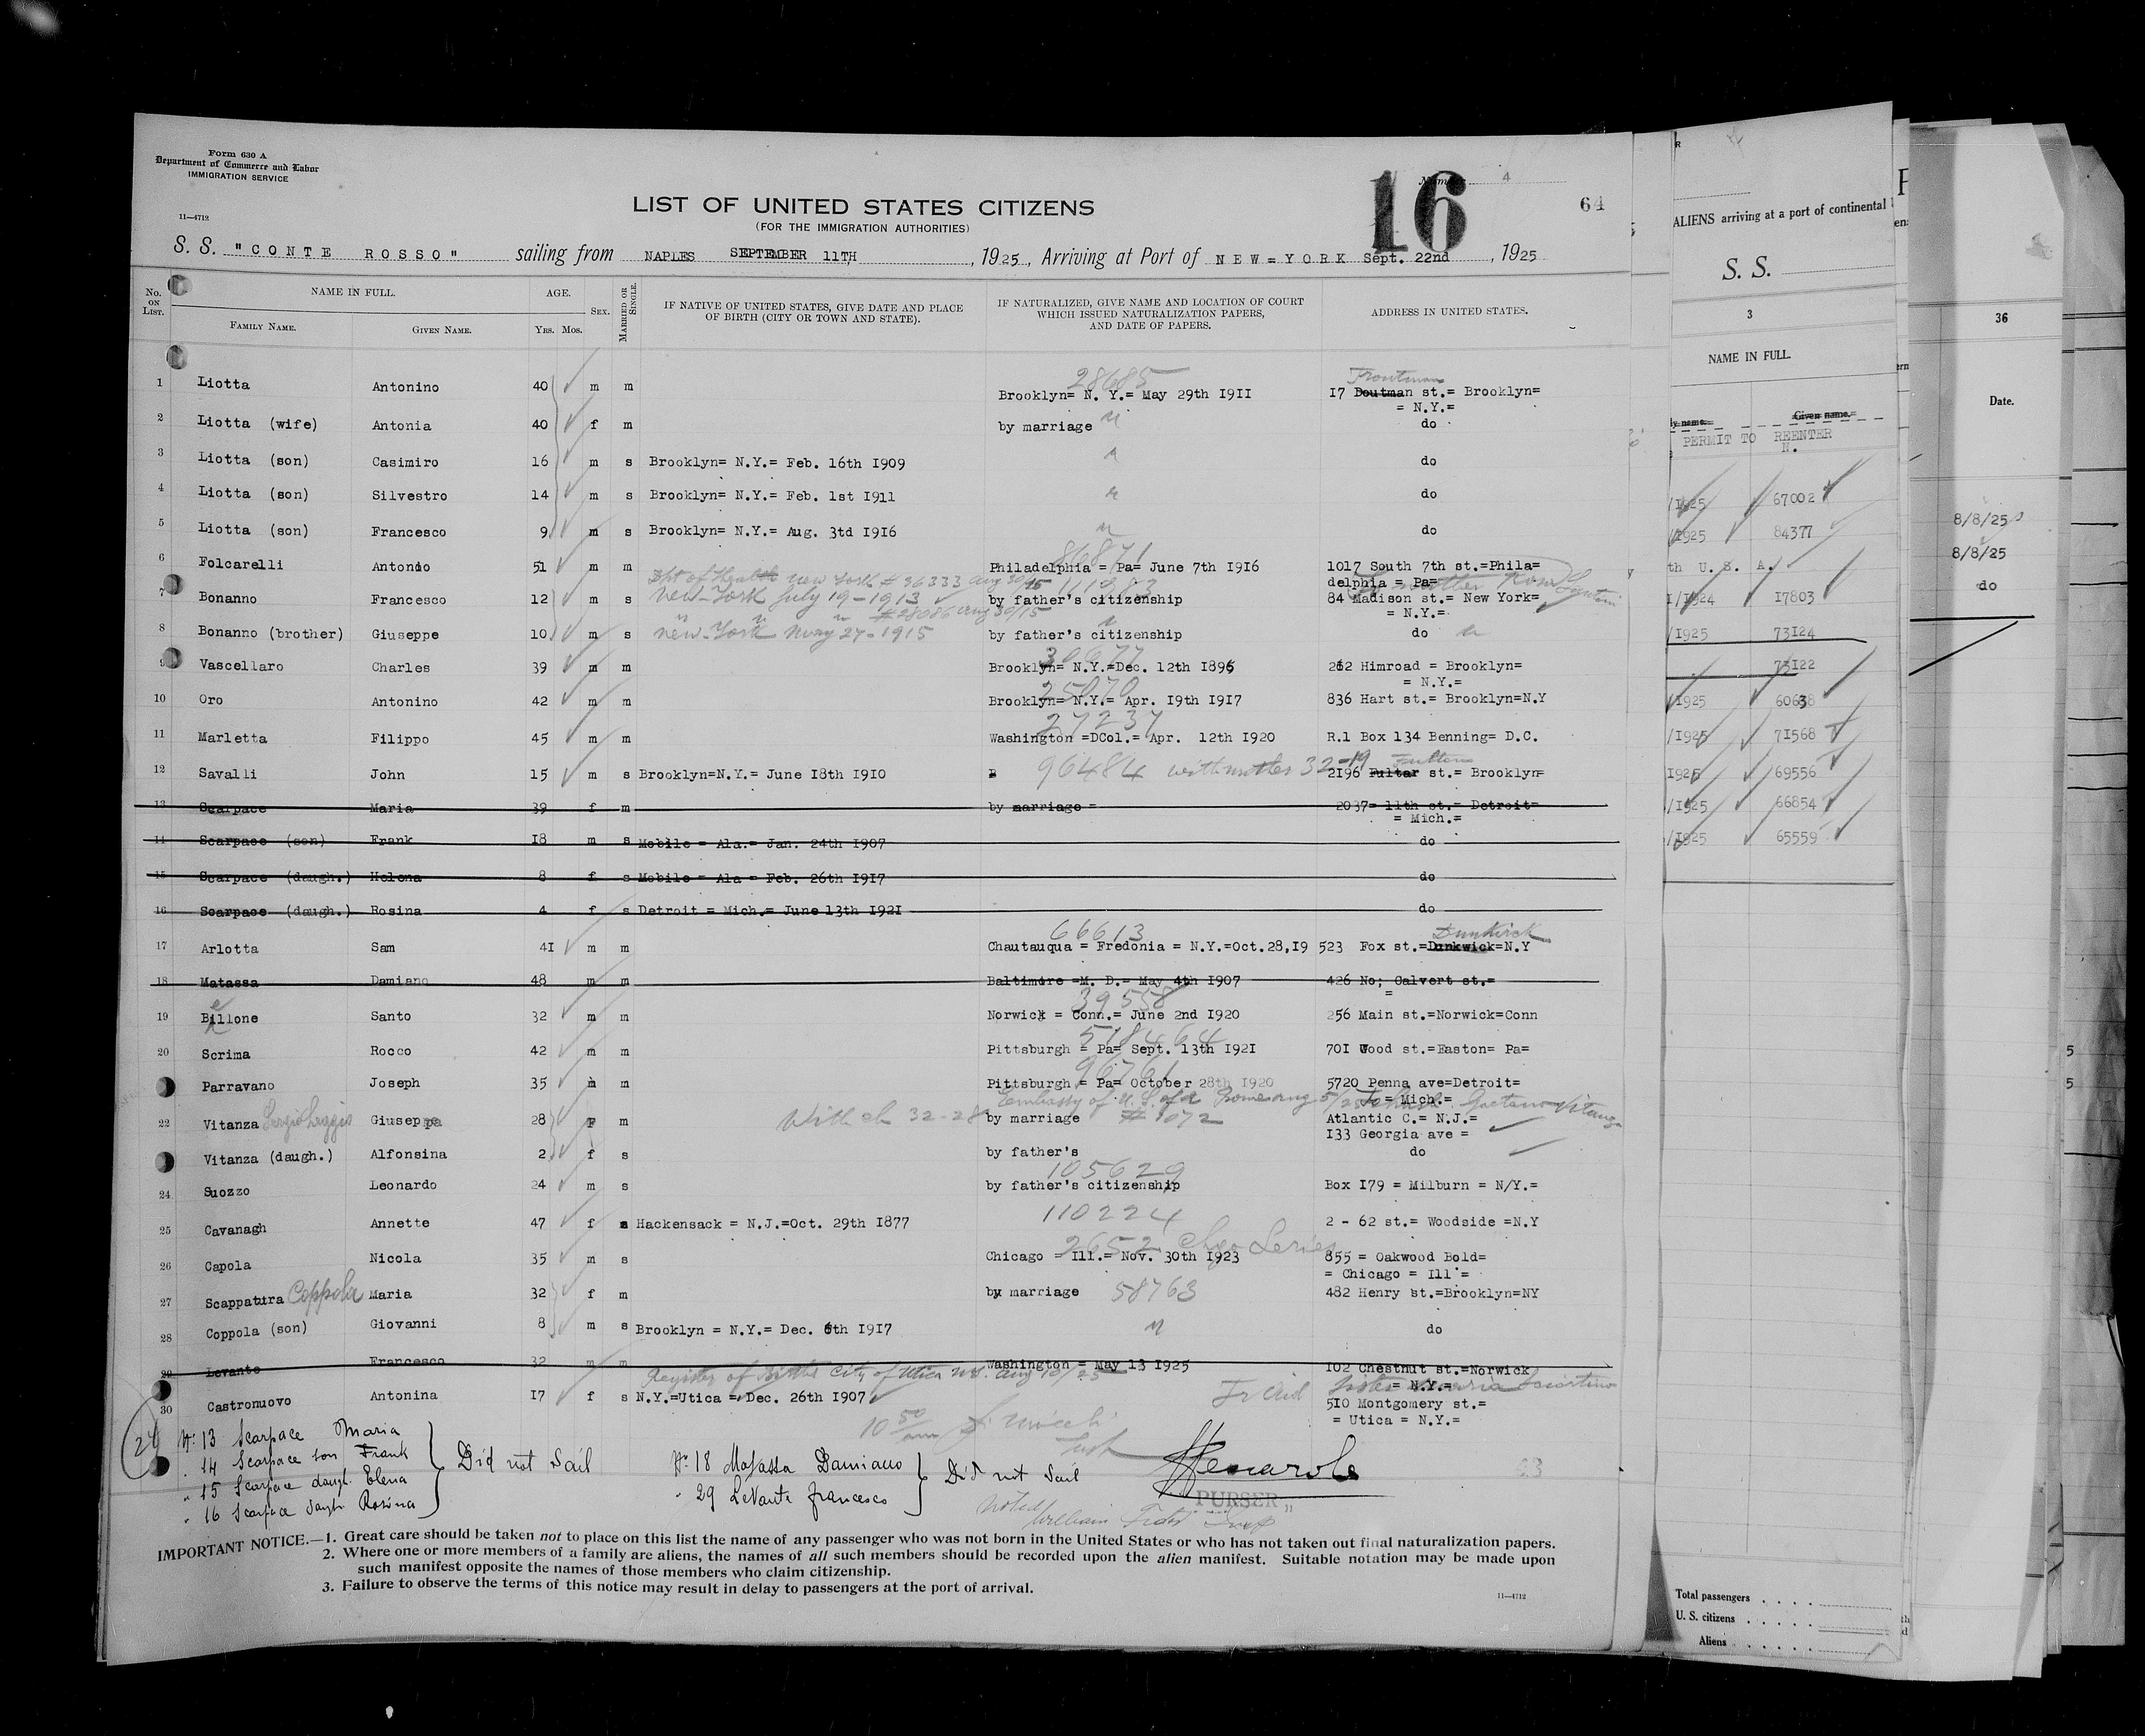 Form 630 A
Department of Commerce and Labor
IMMIGRATION SERVICE
11—4712
Number 4
16
64
LIST OF UNITED STATES CITIZENS
(FOR THE IMMIGRATION AUTHORITIES)
S. S. "CONTE ROSSO" sailing from NAPLES SEPTEMBER 11TH, 1925, Arriving at Port of NEW=YORK Sept. 22nd, 1925
No. ON LIST. NAME IN FULL. AGE. SEX. MARRIED OR SINGLE. IF NATIVE OF UNITED STATES, GIVE DATE AND PLACE OF BIRTH (CITY OR TOWN AND STATE). IF NATURALIZED, GIVE NAME AND LOCATION OF COURT WHICH ISSUED NATURALIZATION PAPERS, AND DATE OF PAPERS. ADDRESS IN UNITED STATES.
FAMILY NAME. GIVEN NAME. YRS. MOS.
28685 Troutman
1 Liotta Antonino 40 m m Brooklyn= N. Y.= May 29th I9II I7 Doutman st.= Brooklyn=
= N.Y.=
2 Liotta (wife) Antonia 40 f m by marriage do
3 Liotta (son) Casimiro 16 m s Brooklyn= N.Y.= Feb. 16th I909 do
4 Liotta (son) Silvestro 14 m s Brooklyn= N.Y.= Feb. 1st I911 do
5 Liotta (son) Francesco 9 m s Brooklyn= N.Y.= Aug. 3td I9I6 do
86871
6 Folcarelli Antonio 51 m m Philadelphia = Pa= June 7th I9I6 1017 South 7th st.=Phila=
delphia = Pa=
Dpt of Health New York # 36333 Aug 30/15 111983
New-York July 19-1913
7 Bonanno Francesco 12 m s by father's citizenship 84 Madison st.= New York=
= N.Y.=
# 28086 Aug 30/15
8 Bonanno (brother) Giuseppe 10 m s New-York May 27-1915 by father's citizenship do
30677
9 Vascellaro Charles 39 m m Brooklyn= N.Y.=Dec. 12th I896 262 Himroad = Brooklyn=
= N.Y.=
25070
10 Oro Antonino 42 m m Brooklyn= N.Y.= Apr. I9th I9I7 836 Hart st.= Brooklyn=N.Y
27237
11 Marletta Filippo 45 m m Washington =DCol.= Apr. 12th I920 R.1 Box 134 Benning= D.C.
96484 with mother 32-19 Fulton
12 Savalli John 15 m s Brooklyn=N.Y.= June I8th I9I0 2I96 Fultar st.= Brooklyn=
13 Scarpace Maria 39 f m by marriage = 2037= 11th st.= Detroit=
= Mich.=
14 Scarpace (son) Frank I8 m s Mobile = Ala.= Jan. 24th I907 do
15 Scarpace (daugh.) Helena 8 f s Mobile = Ala = Feb. 26th I9I7 do
16 Scarpace (daugh.) Rosina 4 f s Detroit = Mich.= June I3th I92I do
66613 Dunkirck
17 Arlotta Sam 4I m m Chautauqua = Fredonia = N.Y.=Oct.28,I9 523 Fox st.=Dunkwick=N.Y
18 Matassa Damiano 48 m m Baltimore =M. D.= May 4th I907 426 No; Calvert st.=
=
39558
19 Billone Santo 32 m m Norwich = Conn.= June 2nd I920 256 Main st.=Norwick=Conn
518464
20 Scrima Rocco 42 m m Pittsburgh = Pa= Sept. 13th I92I 70I Wood st.=Easton= Pa=
96761
Parravano Joseph 35 m m Pittsburgh = Pa= October 28th I920 5720 Penna ave=Detroit=
= Mich.=
Embassy of U.S. of A Rome Aug 5/25 Gaetano Vitanza
22 Vitanza Giuseppa 28 F m with ch 32-28 by marriage # 1072 Atlantic C.= N.J.=
I33 Georgia ave =
Vitanza (daugh.) Alfonsina 2 f s by father's do
105629
24 Suozzo Leonardo 24 m s by father's citizenship Box I79 = Milburn = N/Y.=
110224
25 Cavanagh Annette 47 f s Hackensack = N.J.=Oct. 29th I877 2 - 62 st.= Woodside =N.Y
2652 Chgo Series
26 Capola Nicola 35 m s Chicago = Ill.= Nov. 30th I923 855 = Oakwood Bold=
= Chicago = Ill =
27 Scappatura Coppola Maria 32 f m by marriage 58763 482 Henry st.=Brooklyn=NY
28 Coppola (son) Giovanni 8 m s Brooklyn = N.Y.= Dec. 6th I9I7 do
29 Levante Francesco 32 m m Washington = May 13 I925 I02 Chestnut st.=Norwick
= N.Y.=
Register of Births City of Utica N.Y. Aug 10/25
30 Castronuovo Antonina I7 f s N.Y.=Utica = Dec. 26th I907 5I0 Montgomery st.=
= Utica = N.Y.=
24
No 13 Scarpace Maria
" 14 Scarpace son Frank
" 15 Scarpace daugt. Elena
" 16 Scarpace daugh Rosina
Did not Sail
No 18 Matassa Damiano
" 29 Levante Francesco
Did not Sail
PURSER
Noted
IMPORTANT NOTICE.—1. Great care should be taken not to place on this list the name of any passenger who was not born in the United States or who has not taken out final naturalization papers.
2. Where one or more members of a family are aliens, the names of all such members should be recorded upon the alien manifest. Suitable notation may be made upon
such manifest opposite the names of those members who claim citizenship.
3. Failure to observe the terms of this notice may result in delay to passengers at the port of arrival.
11—4712
ALIENS arriving at a port of continental
S. S.
3
NAME IN FULL.
Given name.
PERMIT TO REENTER
N.
/I925 67002
/I925 84377
th U. S. A.
I/I924 I7803
/I925 73I24
73I22
/I925 60638
/I925 71568
I925 69556
/I925 66854
/I925 65559
Total passengers
U. S. citizens
Aliens
36
Date.
8/8/25
8/8/25
do
5
5